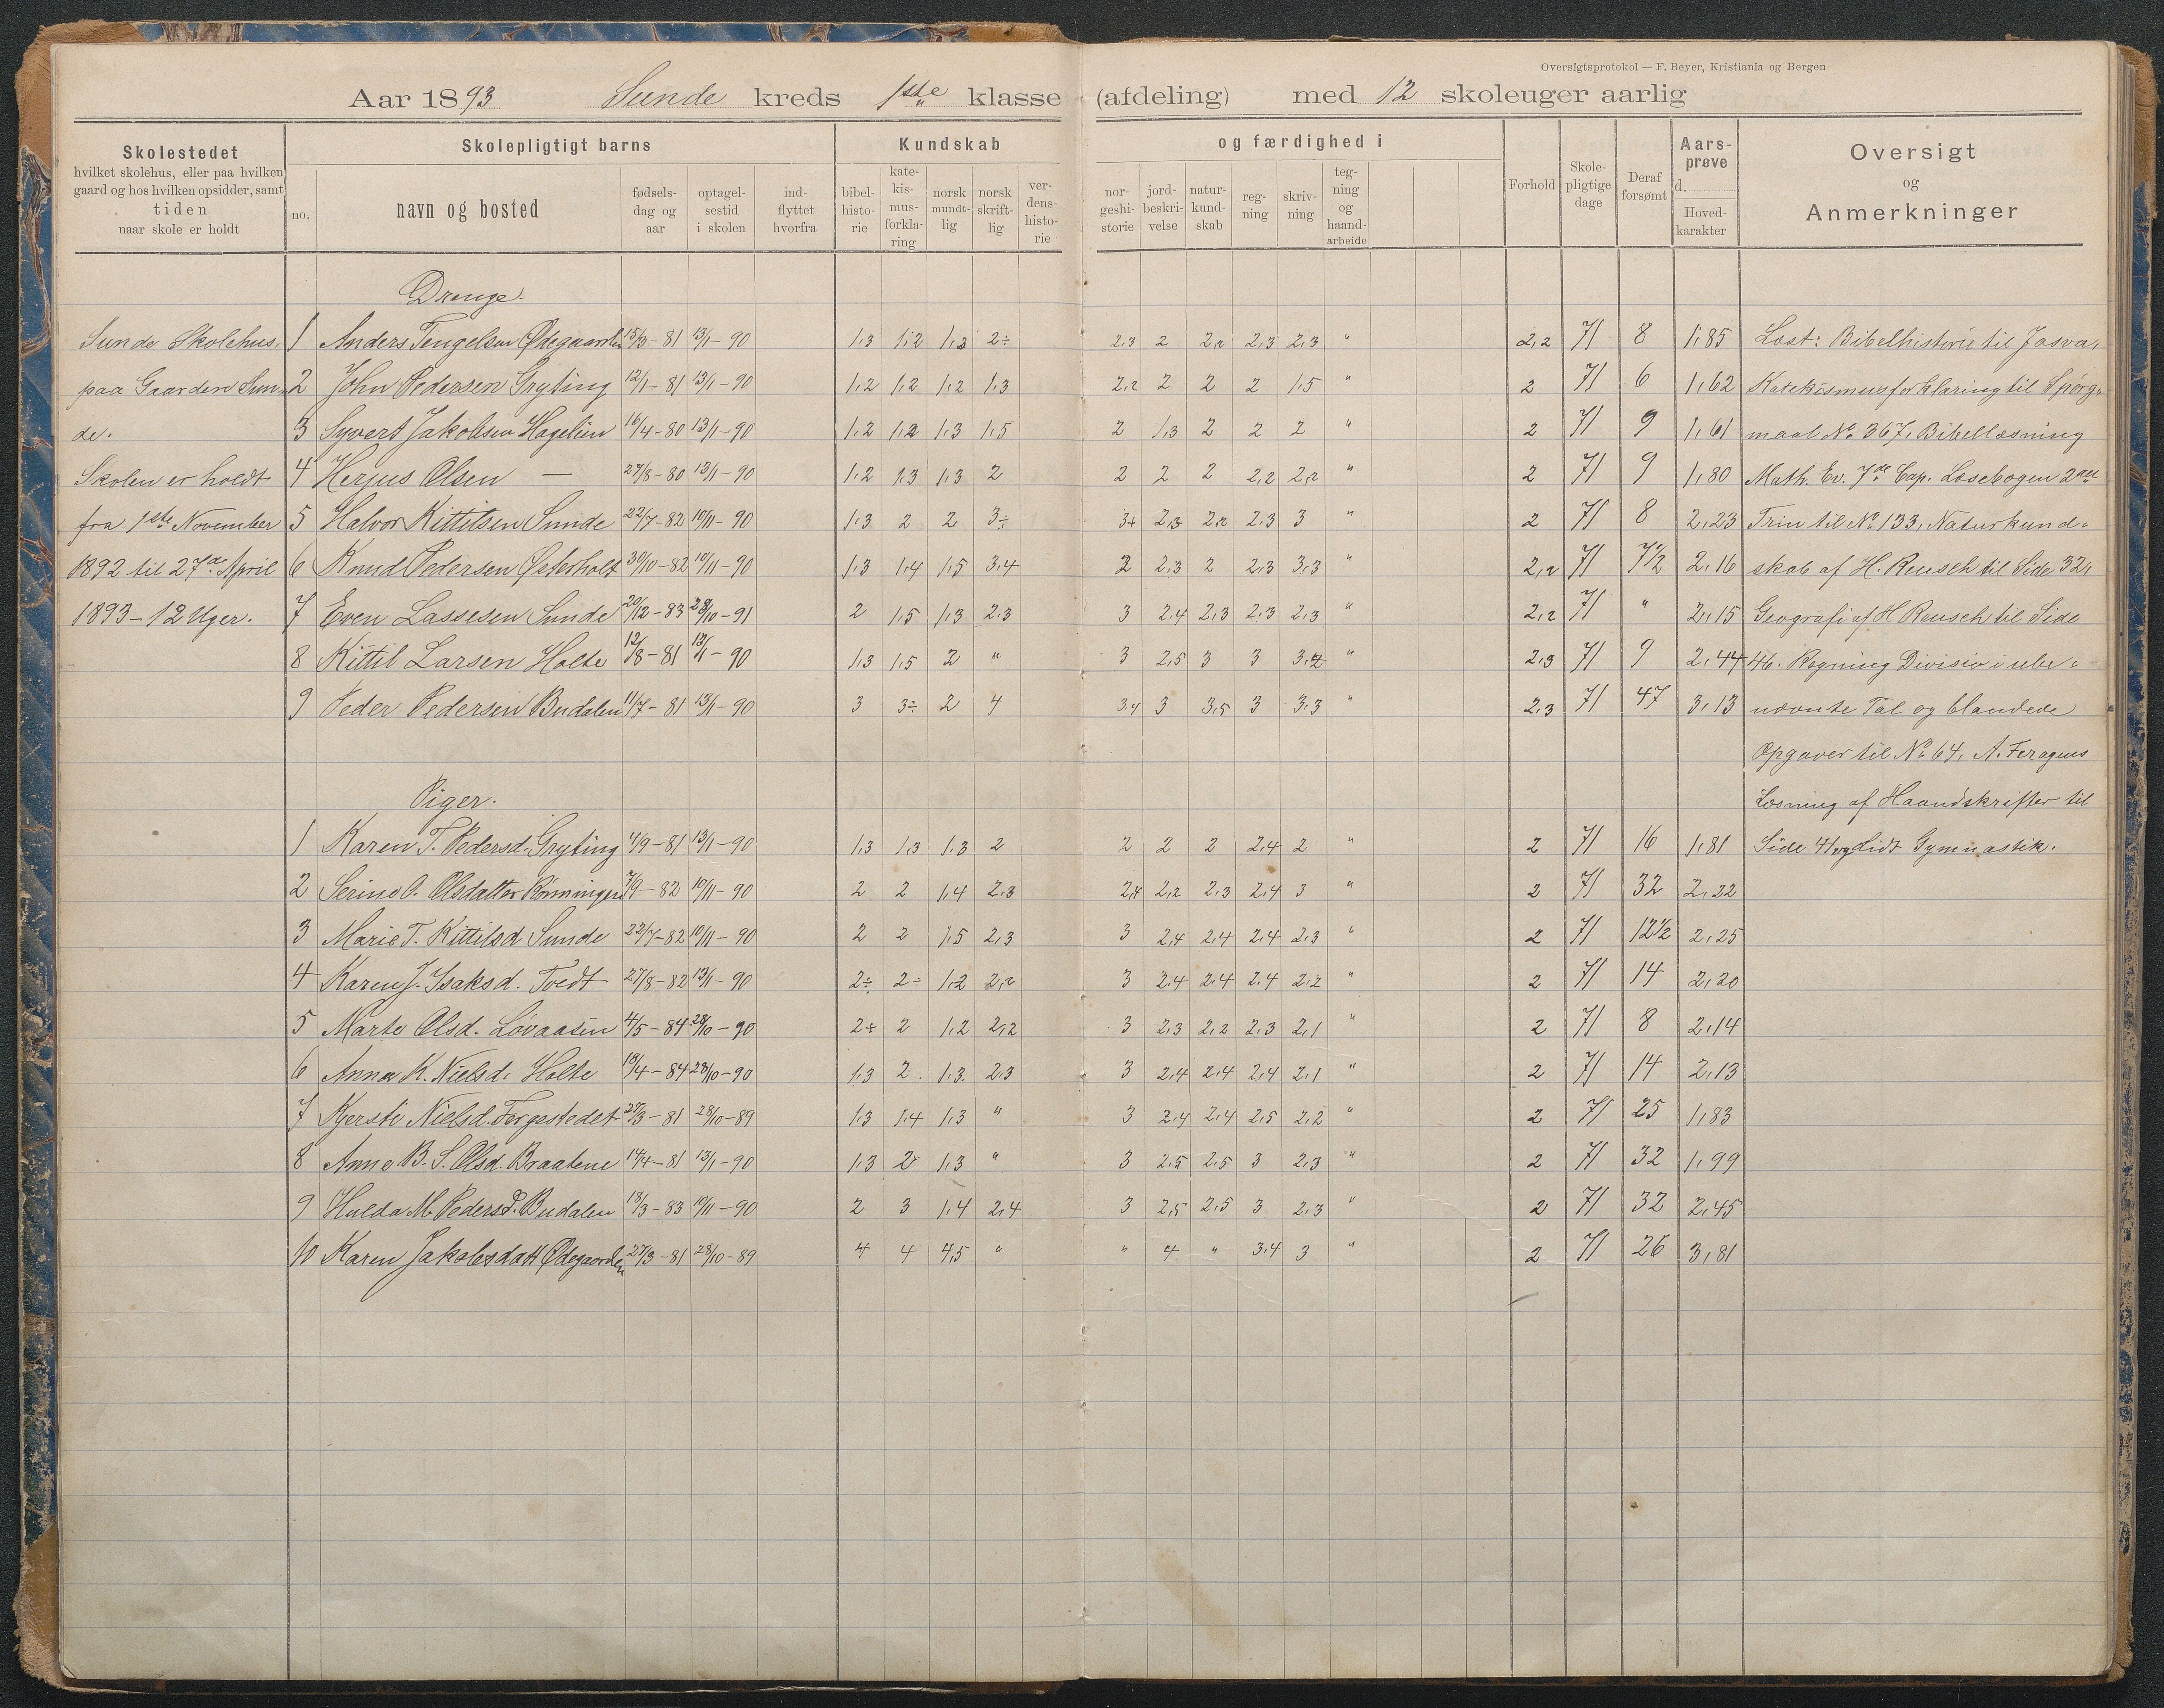 Oversigtsprotokol — F. Beyer, Kristiania og Bergen
Aar 1893 Sunde kreds 1ste klasse (afdeling) med 12 skoleuger aarlig
Skolestedet
hvilket skolehus, eller paa hvilken
gaard og hos hvilken opsidder, samt
tiden
naar skole er holdt
Skolepligtigt barns
no.
navn og bosted
fødsels-
dag og
aar
optagel-
sestid
i skolen
ind-
flyttet
hvorfra
Kundskab
bibel-
histo-
rie
kate-
kis-
mus-
forkla-
ring
norsk
mundt-
lig
norsk
skrift-
lig
ver-
dens-
histo-
rie
og færdighed i
nor-
geshi-
storie
jord-
beskri-
velse
natur-
kund-
skab
reg-
ning
skriv-
ning
teg-
ning
og
haand-
arbeide
Forhold
Skole-
pligtige
dage
Deraf
forsømt
Aars-
prøve
d.
Hoved-
karakter
Oversigt
og
Anmerkninger
Drenge.
Sunde Skolehus, 1 Anders Tengelsen Ødegaarden 15/3-81 13/1-90 1,3 1,2 1,3 2÷ 2,3 2 2,2 2,3 2,3 " 2,2 71 8 1,85 Læst: Bibelhistorie til Josva,
paa Gaarden Sun- 2 John Pedersen Gryting 12/1-81 13/1-90 1,2 1,2 1,2 1,3 2,2 2 2 2 1,5 " 2 71 6 1,62 Katekismusforklaring til Spørgs-
de. 3 Syvert Jakobsen Hagelien 16/4-80 13/1-90 1,2 1,2 1,3 1,5 2 1,3 2 2 2 " 2 71 9 1,61 maal No 367, Bibellæsning
Skolen er holdt 4 Herjus Olsen — 27/8-80 13/1-90 1,2 1,3 1,3 2 2 2 2 2,2 2,2 " 2 71 9 1,80 Math. Ev. 7de Cap. Læsebogen 2det
fra 1ste November 5 Halvor Kittilsen Sunde 22/7-82 10/11-90 1,3 2 2 3÷ 3+ 2,3 2,2 2,3 3 " 2 71 8 2,23 Trin til No 133, Naturkund-
1892 til 27de April 6 Knud Pedersen Østerholt 30/10-82 10/11-90 1,3 1,4 1,5 3,4 2 2,3 2 2,3 3,3 " 2,2 71 7½ 2,16 skab af H. Reusch til Side 32,
1893-12 Uger. 7 Even Lassesen Sunde 20/12-83 28/10-91 2 1,5 1,3 2,3 3 2,4 2,3 2,3 2,3 " 2,2 71 " 2,15 Geografi af H Reusch til Side
8 Kittil Larsen Holte 12/8-81 13/1-90 1,3 1,5 2 " 3 2,5 3 3 3,2 " 2,3 71 9 2,44 46. Regning Division i ube-
9 Peder Pedersen Budalen 11/7-81 13/1-90 3 3÷ 2 4 3,4 3 3,5 3 3,3 " 2,3 71 47 3,13 nævnte Tal og blandede
Opgaver til No 64, A. Feragens
Piger. Læsning af Haandskrifter til
1 Karen T. Pedersd. Gryting 4/9-81 13/1-90 1,3 1,3 1,3 2 2 2 2 2,4 2 " 2 71 16 1,81 Side 41 og lidt Gymnastik.
2 Serine O. Olsdatter Rønningen 7/9-82 10/11-90 2 2 1,4 2,3 2,4 2,2 2,3 2,4 3 " 2 71 32 2,22
3 Marie T. Kittilsd Sunde 22/7-82 10/11-90 2 2 1,5 2,3 3 2,4 2,4 2,4 2,3 " 2 71 12½ 2,25
4 Karen J. Isaksd. Tvedt 27/8-82 13/1-90 2÷ 2÷ 1,2 2,2 3 2,4 2,4 2,4 2,2 " 2 71 14 2,20
5 Marte Olsd. Løvaasen 4/5-84 28/10-90 2÷ 2 1,2 2,2 3 2,3 2,2 2,3 2,1 " 2 71 8 2,14
6 Anna K. Nielsd. Holte 18/4-84 28/10-90 1,3 2 1,3 2,3 3 2,4 2,4 2,4 2,1 " 2 71 14 2,13
7 Kjersti Nielsd. Torgestedet 27/3-81 28/10-89 1,3 1,4 1,3 " 3 2,4 2,4 2,5 2,2 " 2 71 25 1,83
8 Anne B. S. Olsd. Braatene 14/4-81 13/1-90 1,3 2 1,3 " 3 2,5 2,5 3 2,3 " 2 71 32 1,99
9 Hulda M. Pedersd. Budalen 18/3-83 10/11-90 2 3 1,4 2,4 3 2,5 2,5 3 2,3 " 2 71 32 2,45
10 Karen Jakobsdatt Ødegaarden 27/3-81 28/10-89 4 4 4,5 " " 4 " 3,4 3 " 2 71 26 3,81